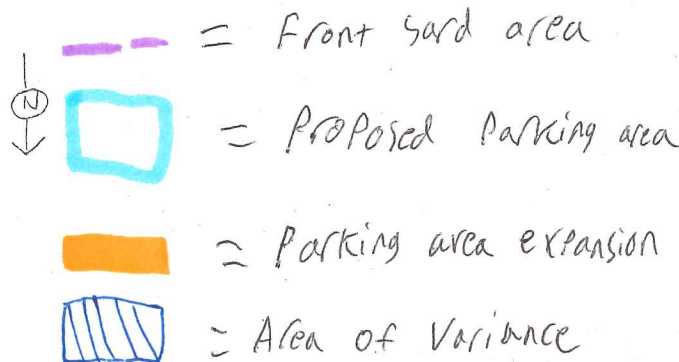 = Front Yard area
N
= Proposed Parking area
= Parking area expansion
= Area of Variance